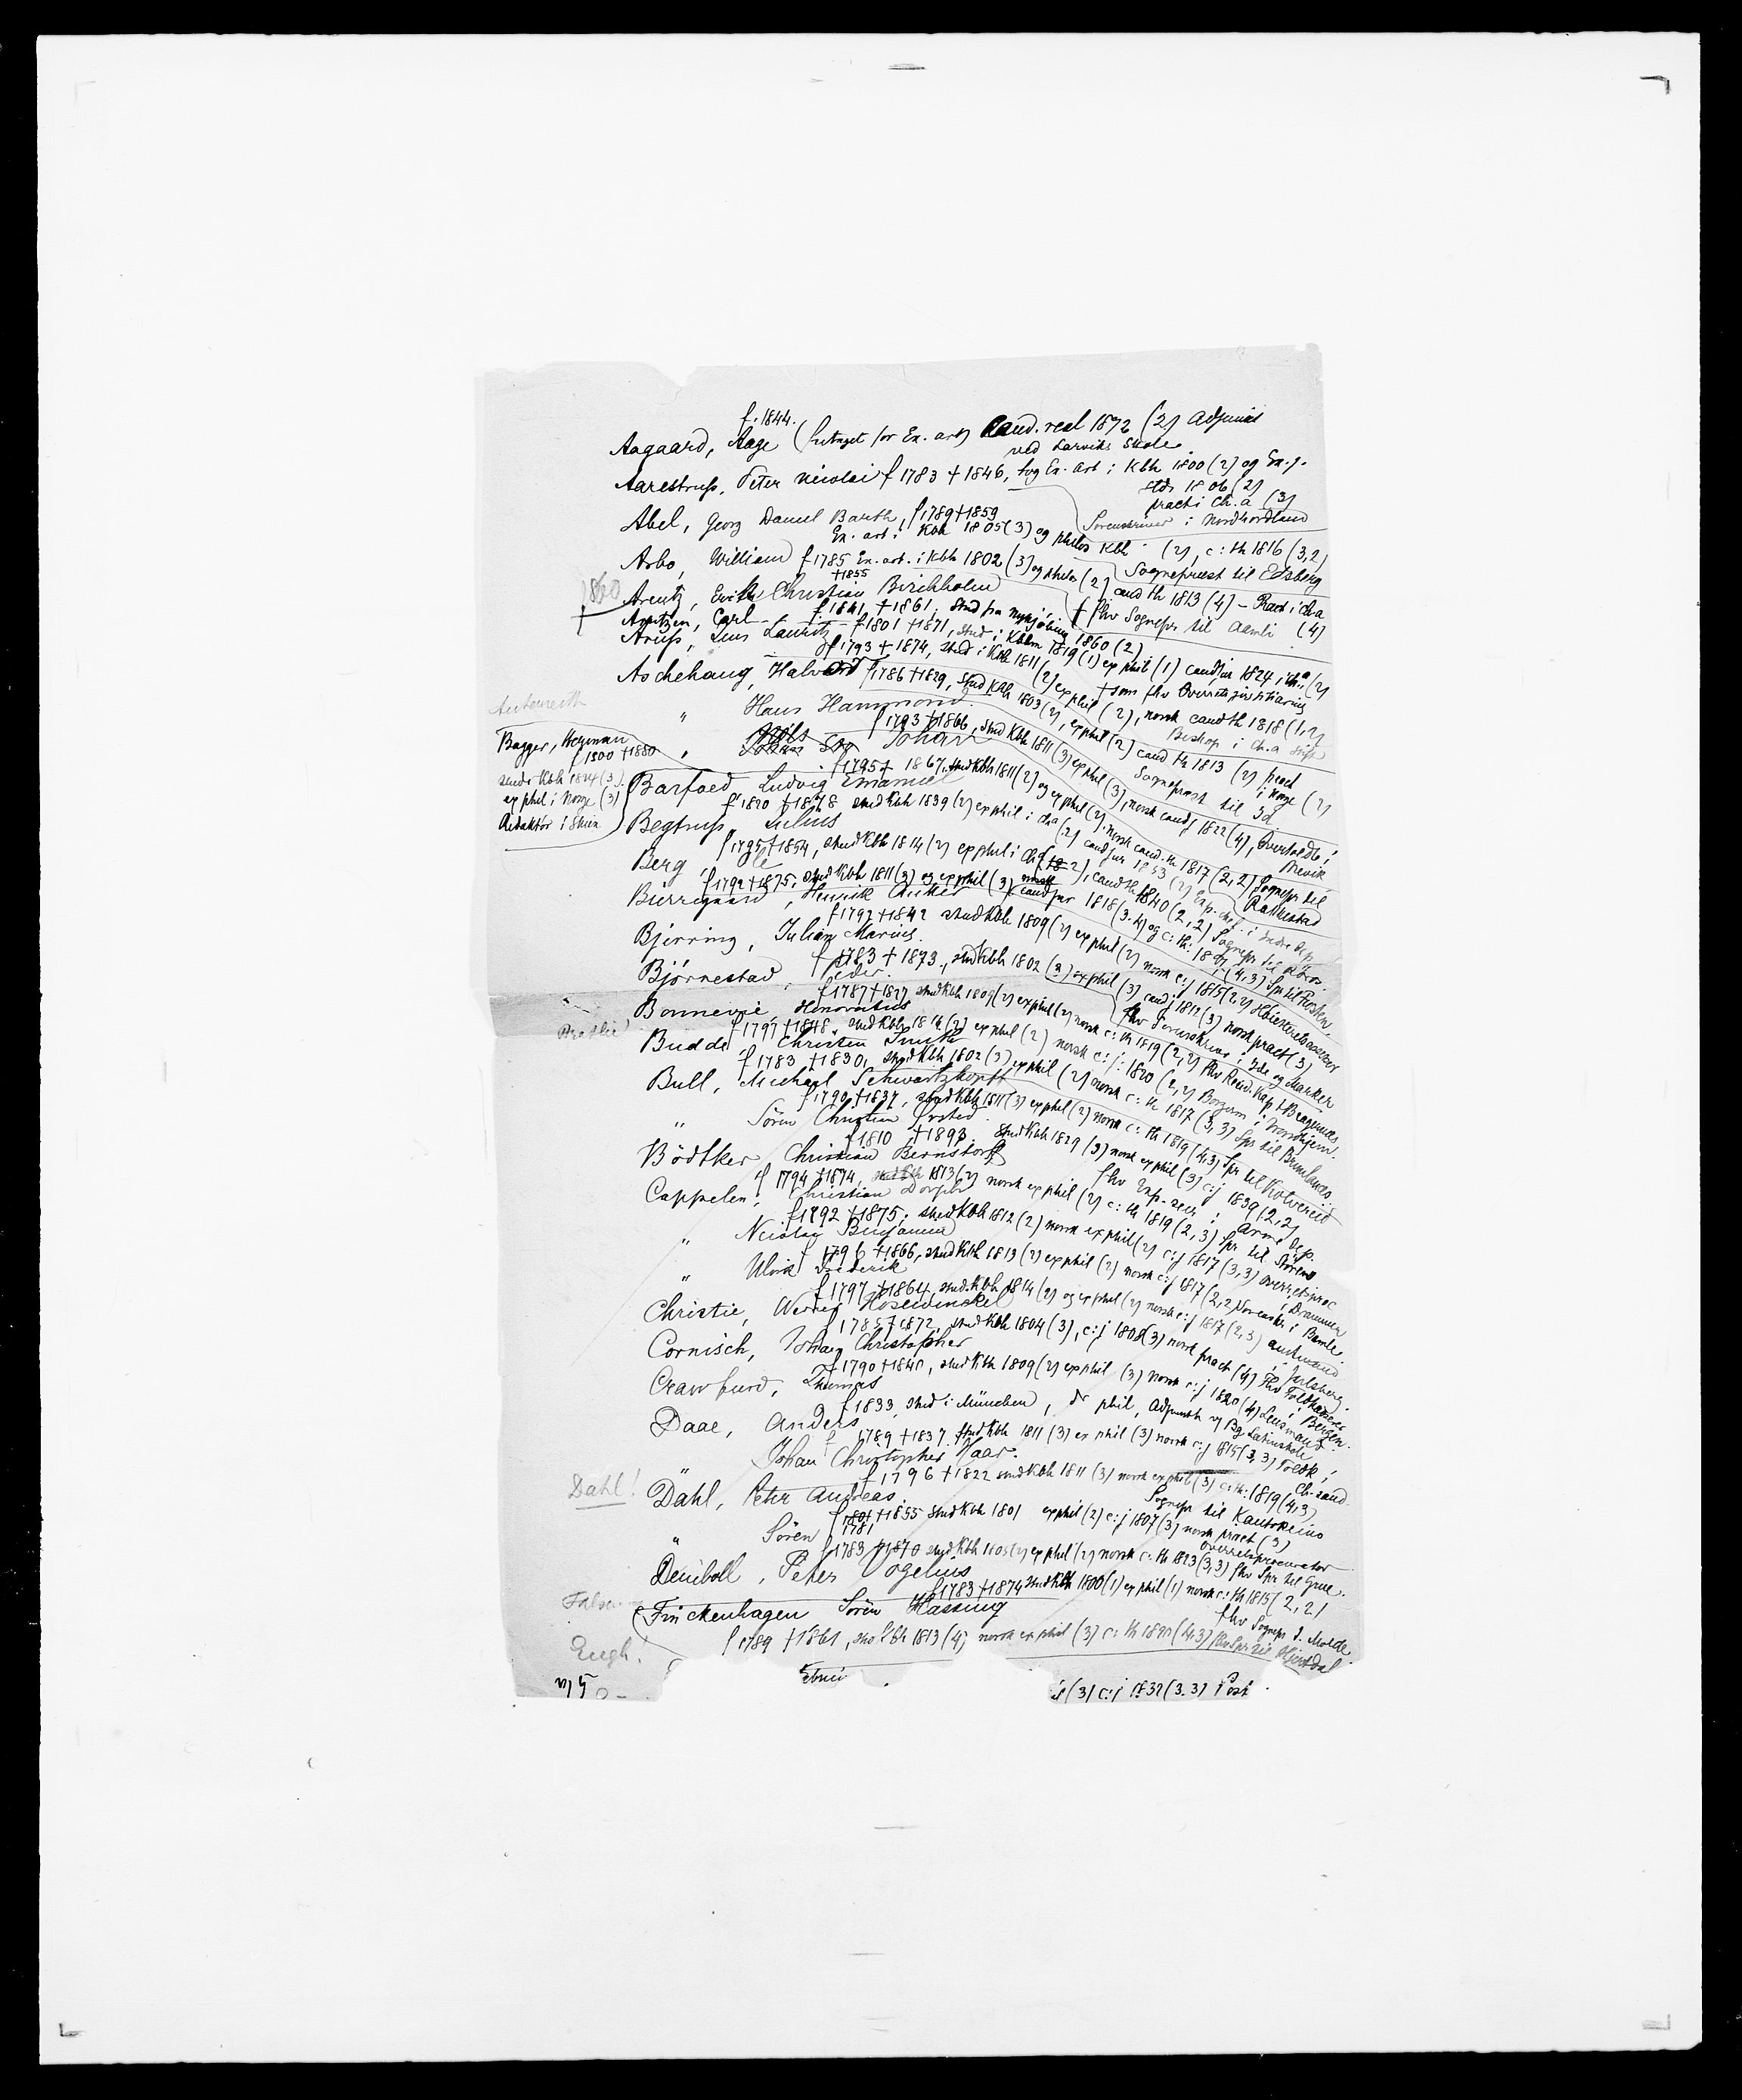 f. 1844.
Aagaard, Aage (fritaget for Ex. art) Cand. real 1872 (2) Adjunct
ved Larviks Skole.
Aarestrup, Peter Nicolai f 1783 † 1846, tog Ex. art i Kbh 1800 (2) og Ex. j.
1806 (2)
pract i Ch.a (3)
Sorenskriver i Nordhordland
Abel, Georg Daniel Barth, f 1789 † 1859
Ex. art i Kbh 1805 (3) og philos Kbh (2), c: th 1816 (3,2)
Sognepræst til Edsberg
Arbo, William f 1785 Ex. art. i Kbh 1802 (3) og philos (2) cand th 1813 (4) - Pract i ch.a
† 1855
(4)
Arentz, Erik Christian Birchholm
† fhv Sognepr til Aamli
1860
f 1841, † 1861. Stud fra Nykjøbing 1860 (2)
Arntzen, Carl
f 1801 † 1871, stud i Kbhvn 1819 (1) ex phil (1) cand jur 1824, i ch.a (2)
Arup, Jens Lauritz
† som fhv Overretsjustitiarius
f 1793 † 1874, stud i Kbh 1811 (2) ex phil (2), norsk cand th 1818 (1,2)
Biskop i Ch.a stift
Aschehoug, Halvord f 1786 † 1829, stud Kbh 1803 (2), ex phil (2) cand th 1813 (2) pract
i Norge (2)
Sognepræst til Id
" Hans Hammond.
f 1793 † 1866, stud Kbh 1811 (3) ex phil (3), norsk cand j 1822 (4), Overtoldb i
" Johan
Autenrieth
Bagger, Herman
f 1800 † 1880
stud Kbh 1824 (3)
ex phil i Norge (3)
Redaktør i Skien
f 1795 † 1867, stud Kbh 1811 (2) og ex phil (2). norsk cand. th 1817 (2,2) Sognepr til
Rakkestad
Barfoed, Ludvig Emanuel
f 1820 † 1878 stud Kbh 1839 (2) ex phil i ch.a (2) cand jur 1853 (2) Exp. chef. i Indre Dep
Begtrup, Julius
f 1795 † 1854, stud Kbh 1814 (2) ex phil i ch.a (2), cand th 1840 (2,2) Sognepr til
Berg,
f 1792 † 1875, stud Kbh 1811 (3) og ex phil (3) norsk cand jur 1818 (3.4) og c: th:
Bierregaard, Henrik Anker
f 1792 † 1842 stud Kbh 1809 (2) ex phil (2) norsk c: j 1815 (2,2) Høiesteretsassessor
Bjerring, Julian Marius.
f 1783 † 1873, stud Kbh 1802 (3) ex phil (3) cand j 1812 (3) norsk pract (3)
fhv Sorenskriver i Ide og Marker
Bjørnestad, Peder.
f 1787 † 1827 stud Kbh 1809 (2) ex phil (2) norsk c: th 1819 (2,2) fhv Resid. Kap. t. Bragernes
Bonnevie, Honoratius
f 1797 † 1848. stud Kbh 1814 (2) ex phil (2) norsk c: j: 1820 (2,2) Borgerm i Trondhjem.
Budde, Christen Smith
f 1783 † 1830, stud Kbh 1802 (3) ex phil (2) norsk c: th 1817 (3,3) Spr til Brunlanes.
Bull, Michael Schwartzkopf
f 1790 † 1837, stud Kbh 1811 (3) ex phil (2) norsk c: th 1819 (4,3) Spr til Kolvereid
" Sören Christian Örsted
f 1810 † 1893 stud Kbh 1829 (3) norsk ex phil (3) c: j 1839 (2,2)
fhv Exp. secr i Armé Dep.
Bödtker, Christian Bernstorff
f 1794 † 1874, stud Kbh 1813 (2) norsk ex phil (2) c: th 1819 (2,3) Spr til
Cappelen, Christian
f 1792 † 1875, stud Kbh 1812 (2) norsk ex phil (2) c: j 1817 (3,3) overretsproc
i Drammen
" Nicolai Benjamin
f 1796 † 1866, stud Kbh 1813 (2) ex phil (2) norsk c: j 1817 (2,2) Sorenskr. i Bamle
" Ulrik Frederik
f 1797 † 1864, stud. Kbh 1814 (2) og ex phil (2) norsk c: j 1817 (2,3) amtmand
i Jarlsberg.
Christie, Werner Hosewinckel
f 1785 † 1872, stud Kbh 1804 (3), c: j 1808 (3) norsk pract (4) Fhv Toldkasserer
i Bergen.
Cornisch, Johan Christopher
f 1790 † 1840, stud Kbh 1809 (2) ex phil (3) norsk c: j 1820 (4) Lensmand
Crawfurd, Thomas
f 1833, stud i München, dr phil, Adjunkt v/ Bg. Latinskole
Daae, Anders
f 1789 † 1837. stud Kbh 1811 (3) ex phil (3) norsk c: j 1815 (3,3) Toldk. i
Ch. sand.
" Johan Christopher Haar.
f 1796 † 1822 stud Kbh 1811 (3) norsk ex phil (3) c: th: 1819 (4,3)
Sognepr til Kautokeino
Dahl!
Dahl, Peter Andreas.
f 1781 † 1855 stud Kbh 1801 ex phil (2) c: j 1807 (3) norsk pract (3)
Overretsprocurator
" Sören
f 1783 † 1870 stud Kbh 1805 (2) ex phil (2) norsk c: th 1823 (3,3) fhv Spr til Grue.
Deinboll, Peter Vogelius
f 1783 † 1874 stud Kbh 1800 (1) ex phil (1) norsk c: th 1815 (2,2)
fhv Sognepr t. Molde.
Falsen
Finckenhagen Sören Hassing
Eugh!
f 1789 † 1861, stud Kbh 1813 (4) norsk ex phil (3) c: th (4,3) fhv Spr til Hjertdal
(3) c: j 1832 (3.3) Post